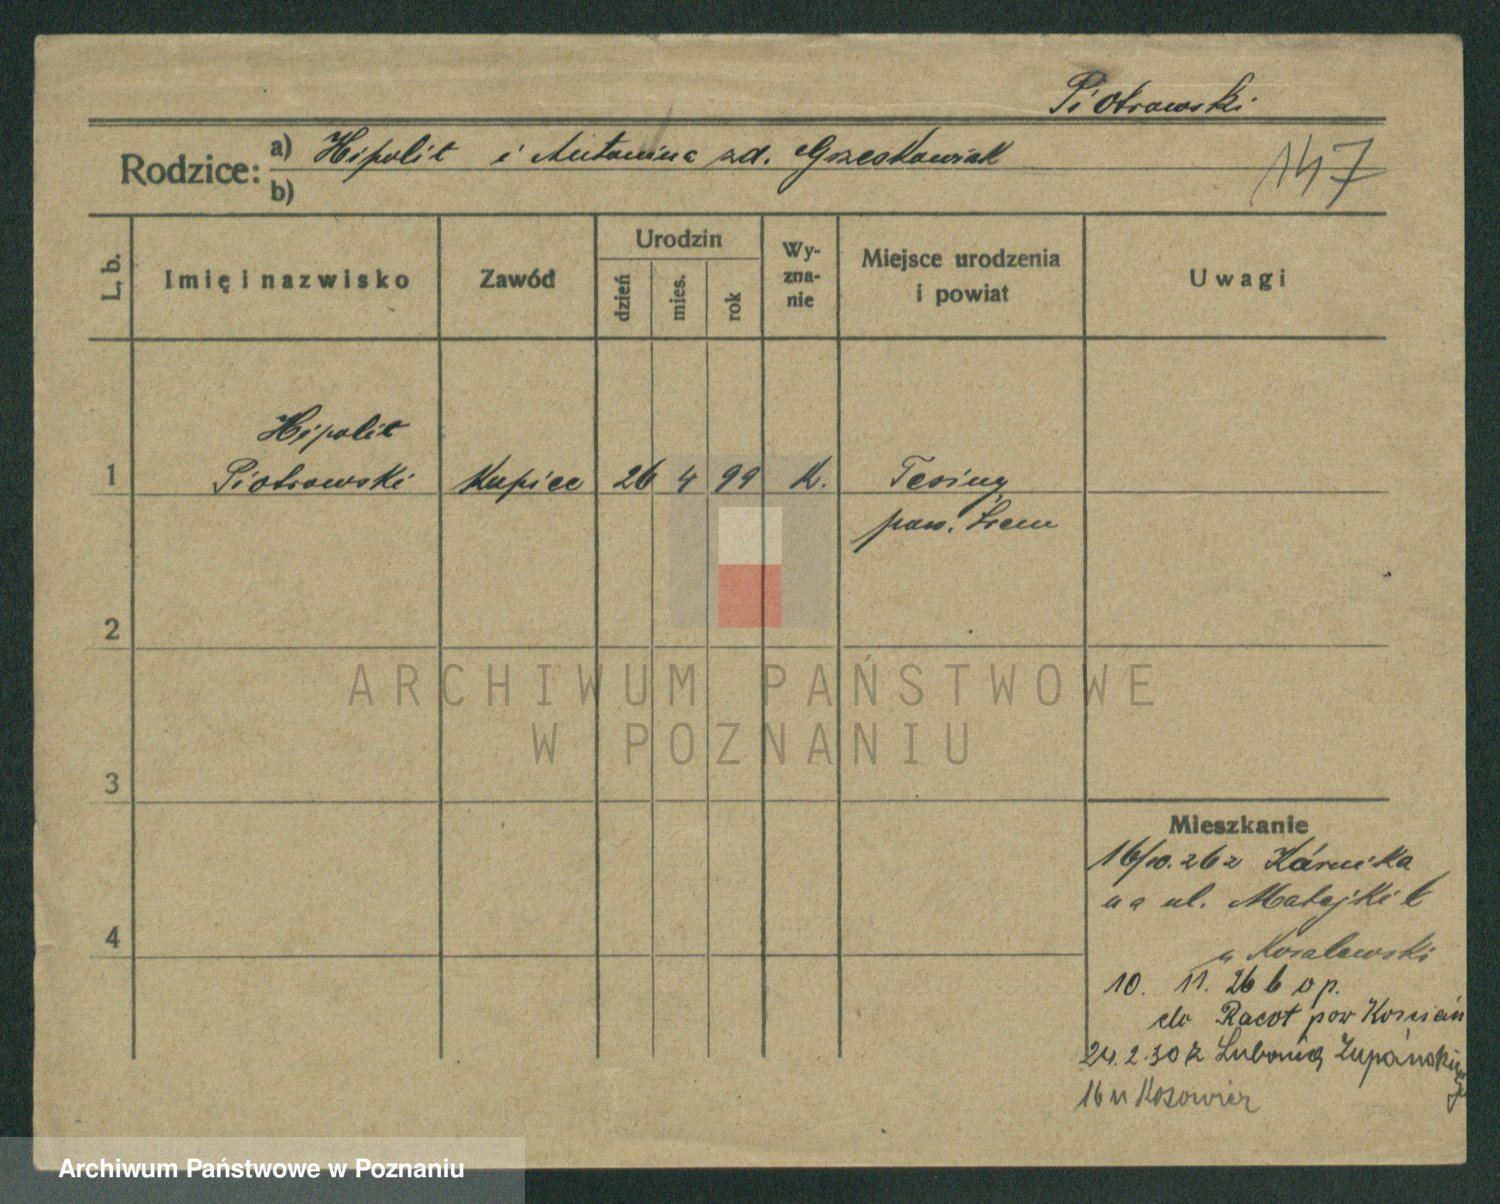 Piotrowski
Rodzice: a) Hipolit i Antonina zd. Grześkowiak
b)
147
L. b.
Imię i nazwisko
Zawód
Urodzin
dzień
mies.
rok
Wy-
zna-
nie
Miejsce urodzenia
i powiat
Uwagi
Hipolit
1 Piotrowski Kupiec 26 4 99 K. Tesiny
pow. Śrem
2
3
4
ARCHIWUM PAŃSTWOWE
W POZNANIU
Mieszkanie
16/10.26 z Kórnika
na ul. Matejki 6
u Koralewski
10. 11. 26 b o p.
do Racot pow Kościan
24.2.30 z Lubonia Żupańskiego
16 u
Archiwum Państwowe w Poznaniu